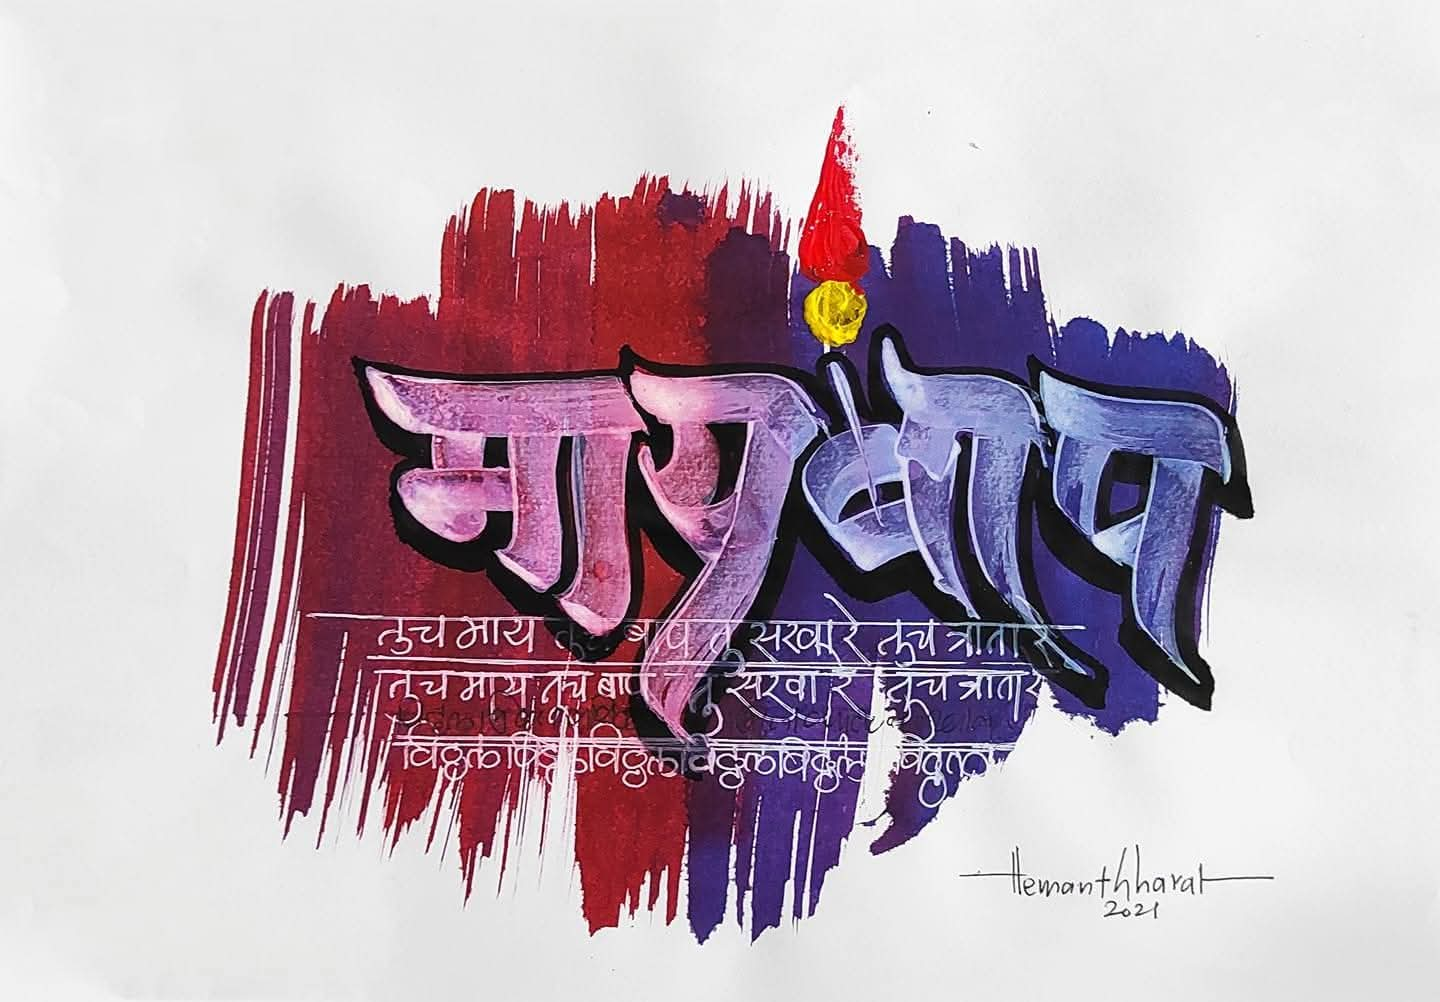 मायबाप
तुच माय तुच बाप तु सखा रे तुच त्राता रे
तुच माय तुच बाप तु सखा रे तुच त्राता रे
विठ्ठल विठ्ठल विठ्ठल विठ्ठल विठ्ठल विठ्ठल
Hemanthharat
2021